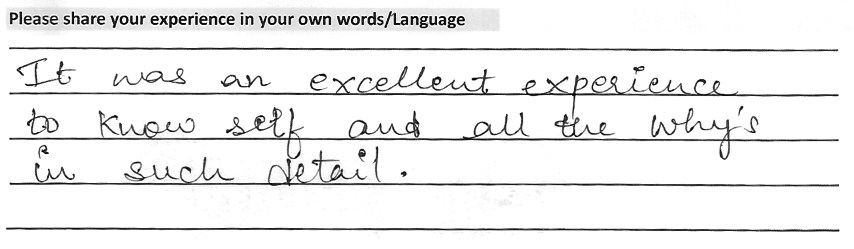 Please share your experience in your own words/Language
It was an excellent experience
to know self and all the why's
in such detail.